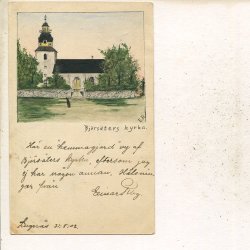 Björsäters kyrka.
Här en hemmagjord vy af
Björsäters kyrka, eftersom jag
ej har någon annan. Hälsnin-
gar från